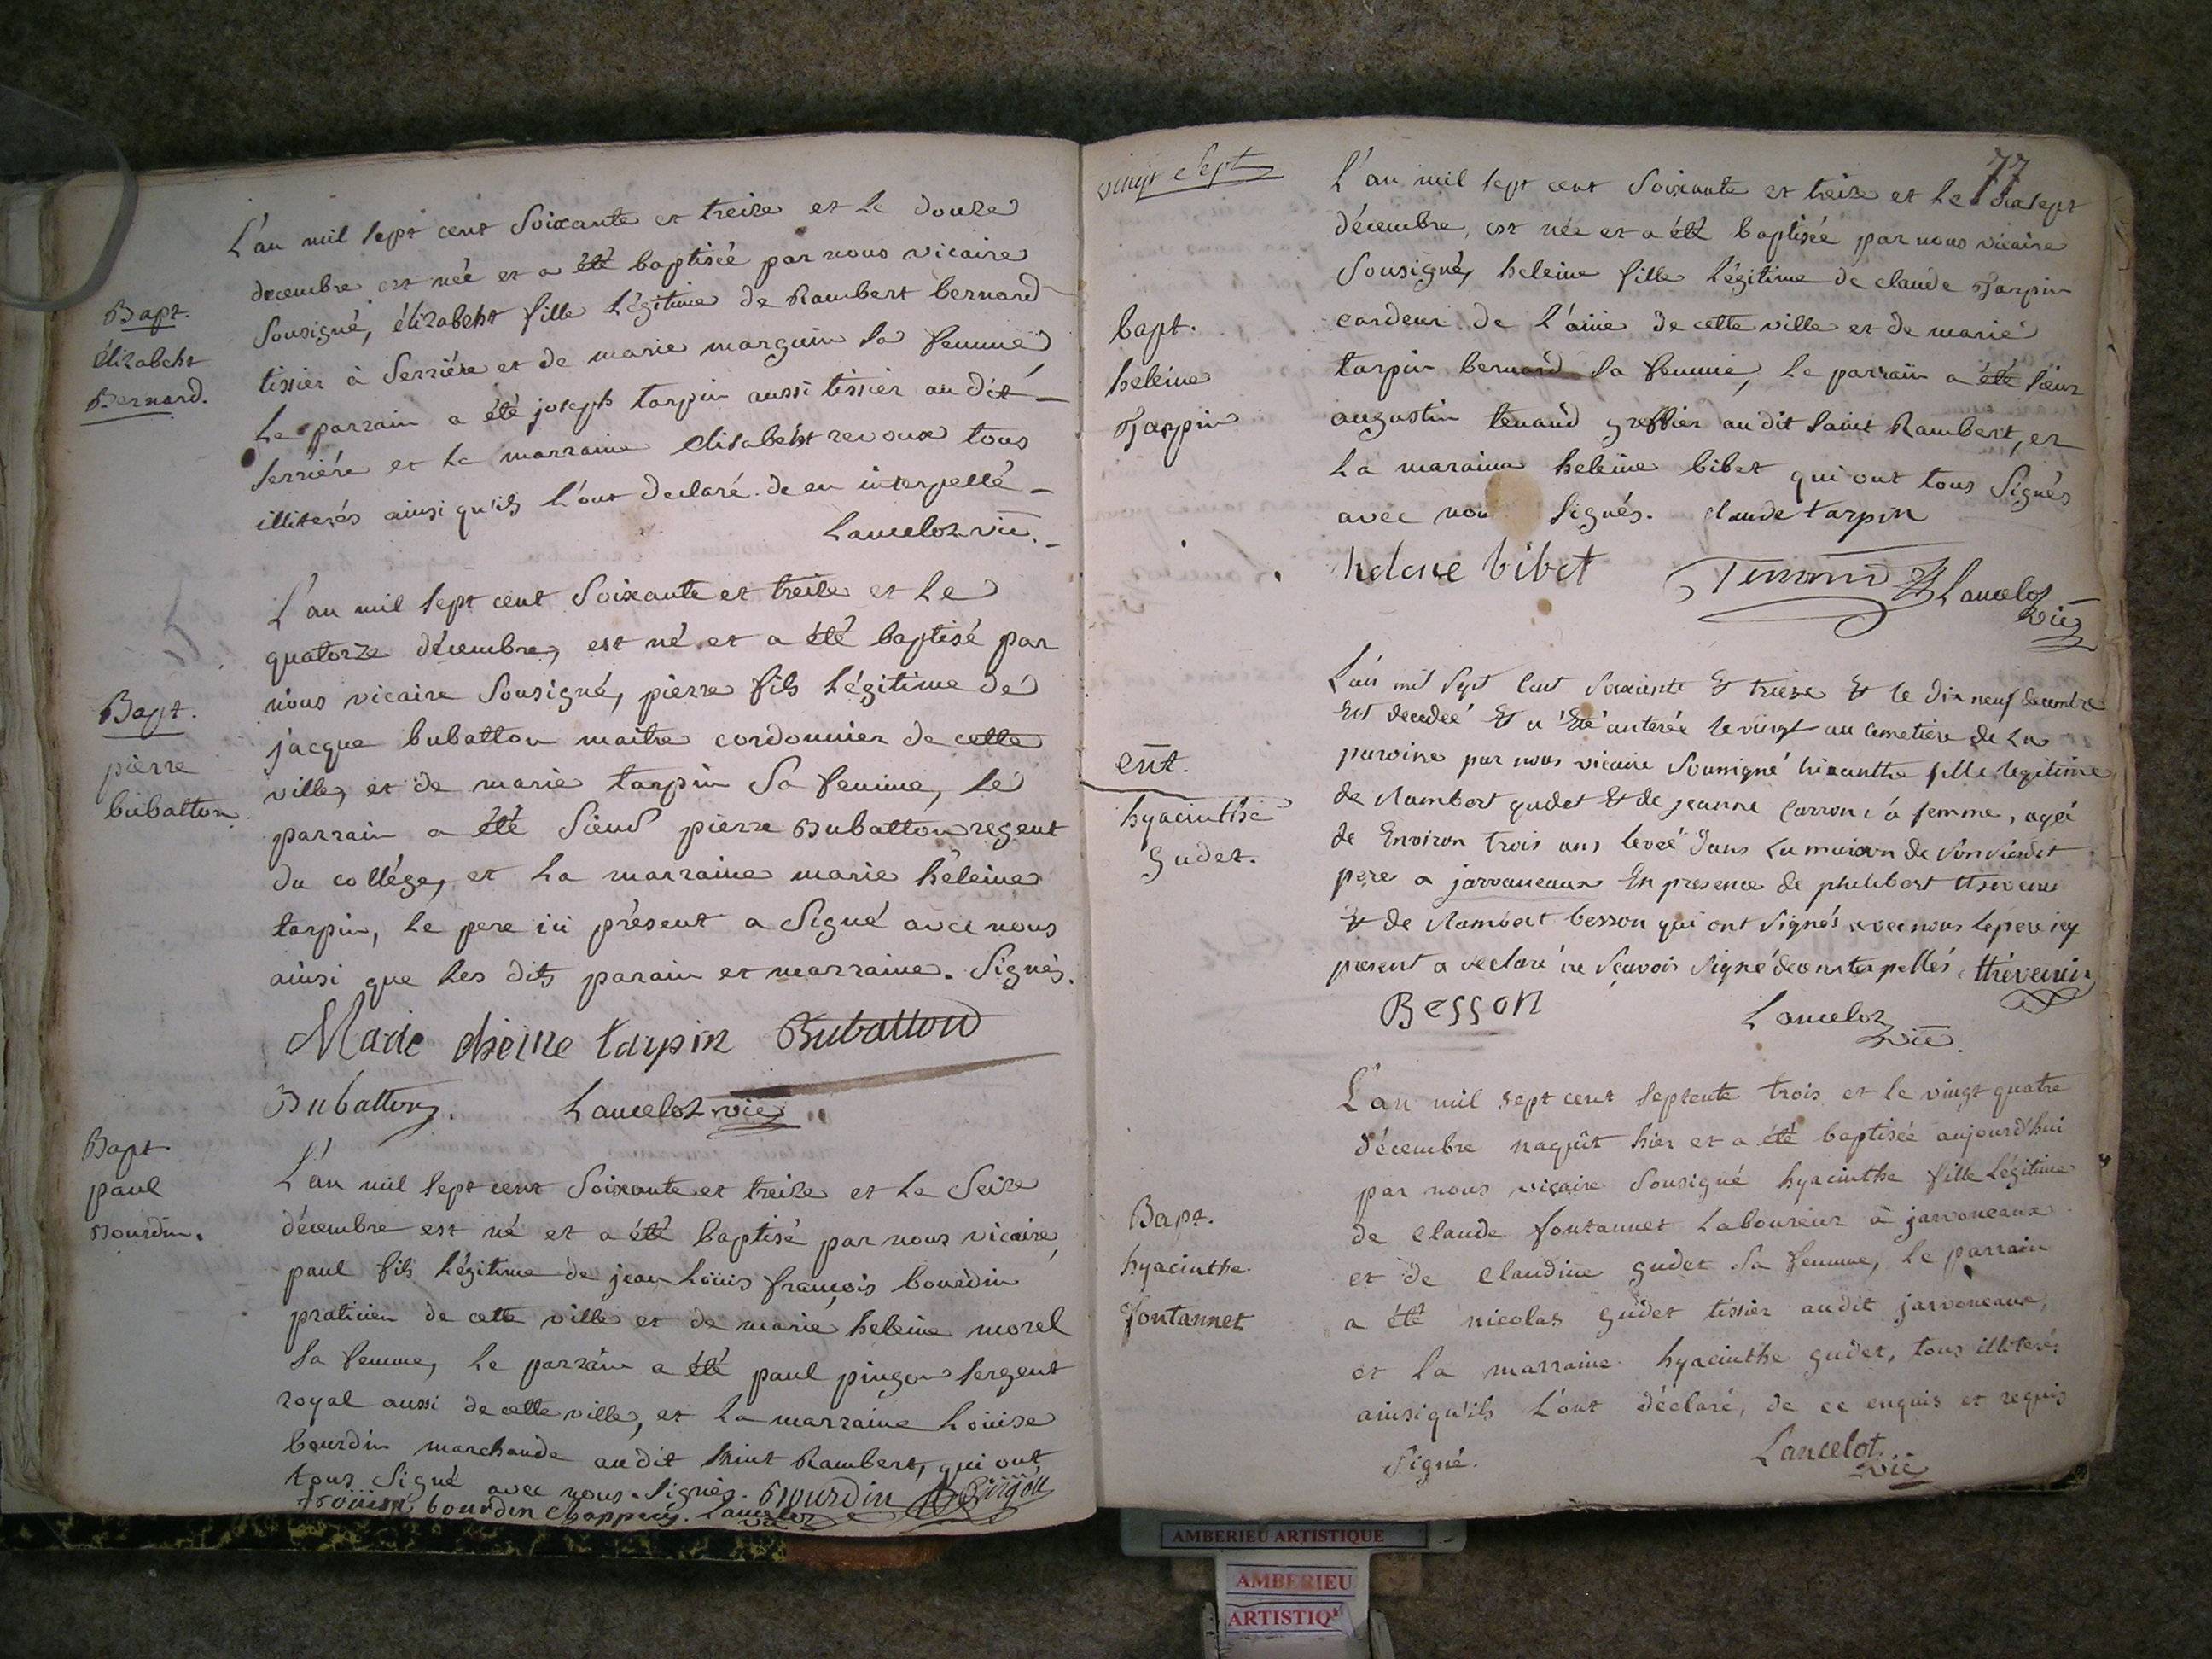 L'an mil sept cent Soixante et treize et le douze
decembre est née et a été baptisée par nous vicaire
Bapt.
élizabeht
Bernard.
Sousigné, élizabeht fille légitime de Rambert bernard
tissier à Serriére et de marie marguin sa femme
le parrain a été joseph tarpin aussi tissier au dit
serriére et la marraine elisabeht revoux tous
illiterés ainsi qu'ils l'ont declaré de en interpellé
Lancelot vic.
L'an mil sept cent Soixante et treize et le
quatorze décembre, est né et a été baptisé par
Bapt.
pierre
bubatton
nous vicaire Sousigné, pierre fils légitime de
jacque bubatton maitre cordonnier de cette
ville, et de marie tarpin Sa femme, le
parrain a été Sieur pierre Bubatton regent
du collége, et la marraine marie héleine
tarpin, le pere ici présent a Signé avec nous
ainsi que les dits parain et marraine. Signés.
Marie eleine tarpin Bubatton
Bubatton. Lancelot vic
Bapt
paul
Bourdin.
L'an mil sept cent Soixante et treize et le Seize
décembre est né et a été baptisé par nous vicaire,
paul fils légitime de jean Loüis françois bourdin
praticien de cette ville et de marie heleine morel
sa femme, le parrain a été paul pingon sergent
royal aussi de cette ville, et la marraine Loüise
bourdin marchande audit saint Rambert, qui ont
tous Signé avec nous. Signés. Bourdin Pingon
bourdin Lancelot vic
77
vingt Sept
L'an mil sept cent Soixante et treize et le dix sept
décembre, est née et a été baptisée par nous vicaire
bapt.
heleine
Tarpin
Sousigné, heleine fille légitime de claude Tarpin
cardeur de l'aine de cette ville et de marie
tarpin bernard sa femme, le parrain a été sieur
augustin tenand greffier au dit saint Rambert, et
la maraine heleine bibet qui ont tous Signés
avec nou Signés. claude tarpin
helene bibet Tenand Lancelot vic
L'an mil Sept Cent Soixante Et treize Et le dix neuf decembre
Est decedeé Et a Eté anterée le vingt au Cemetiere de La
ent.
hyacinthe
gudet.
paroisse par nous vicaire Soussigné hiacinthe fille legitime
de Rambert gudet Et de jeanne Carron Sa femme, ageé
de Environ trois ans leveé dans La maison de Son dit
pere a jarvoneaux En presence de philibert thevenin
Et de Rambert besson qui ont Signés avec nous le pere icy
present a declaré ne Sçavoir Signé de ce interpellés thevenin
Besson Lancelot vic.
L'an mil sept cent septente trois et le vingt quatre
décembre naquît hier et a été baptisée aujourd'hui
Bapt.
hyacinthe
fontannet
par nous vicaire Sousigné hyacinthe fille légitime
de claude fontannet Laboureur à jarvoneaux
et de claudine gudet Sa femme, le parrain
a été nicolas gudet tissier audit jarvoneaux,
et la marraine hyacinthe gudet, tous illiterés
ainsi qu'ils l'ont déclaré, de ce enquis et requis
Signé. Lancelot vic
AMBERIEU ARTISTIQUE
AMBERIEU
ARTISTIQ